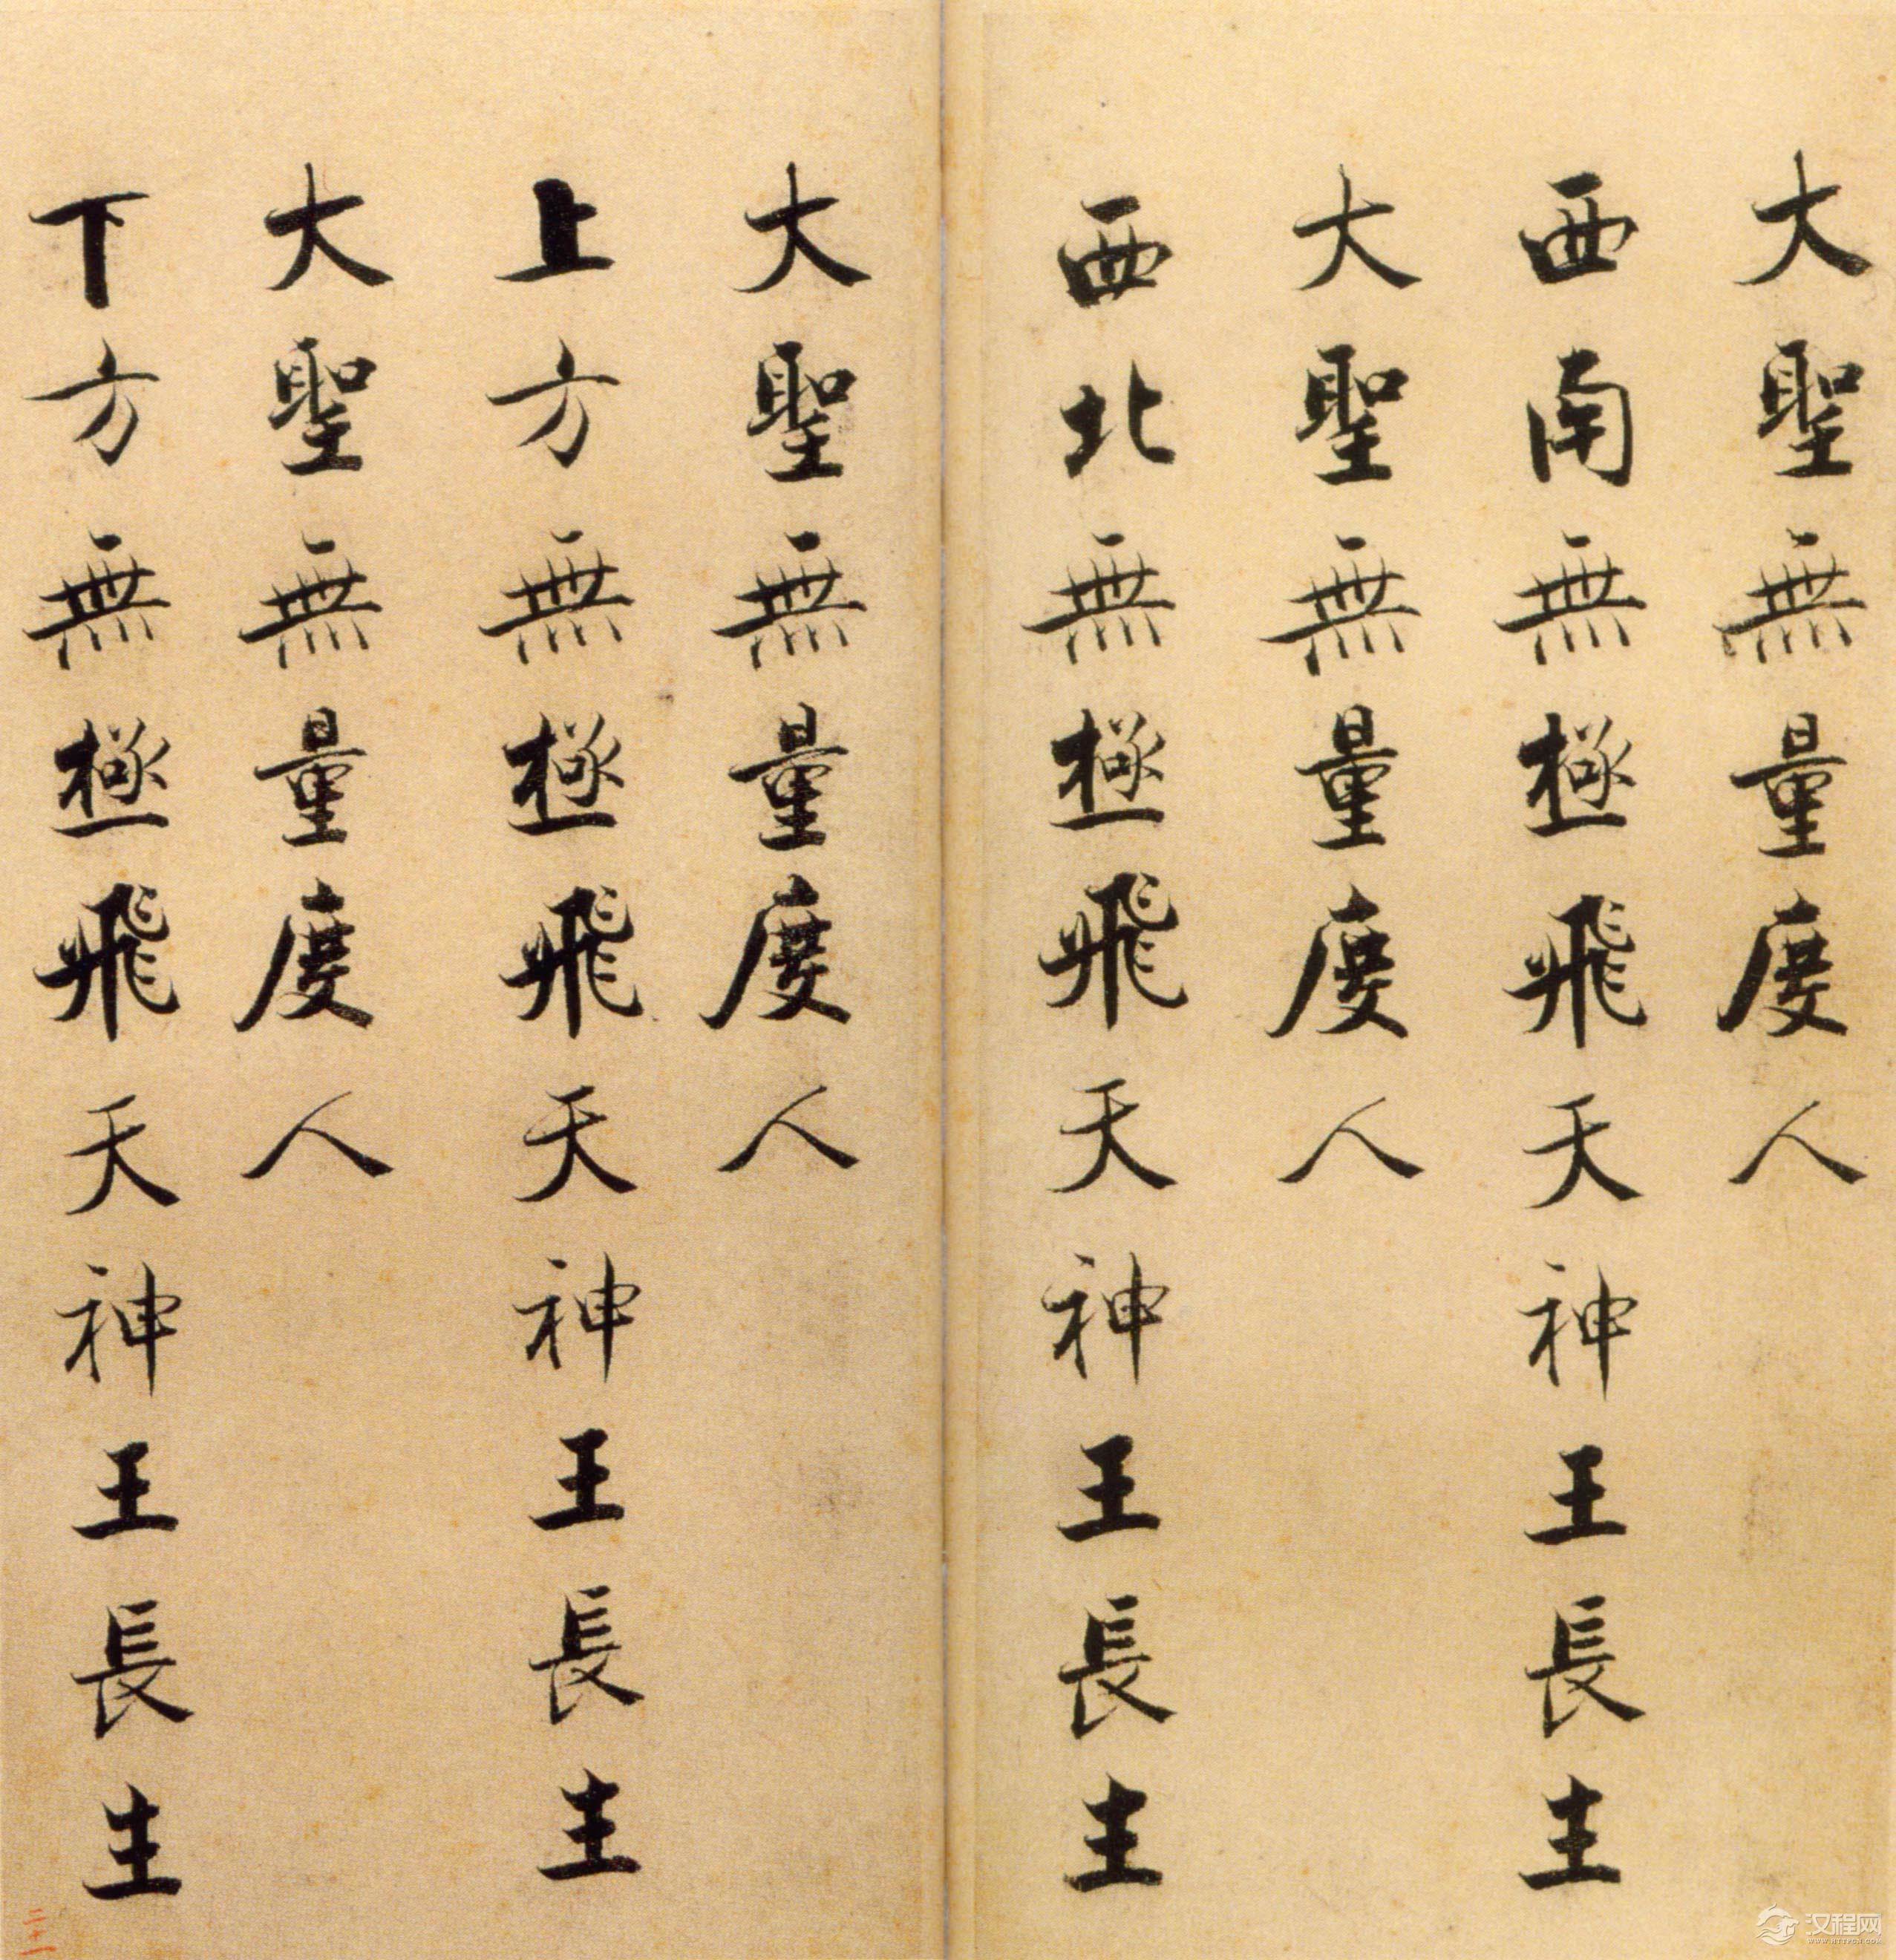 大聖無量度人
西南無極飛天神王長生
大聖無量度人
西北無極飛天神王長生
大聖無量度人
上方無極飛天神王長生
大聖無量度人
下方無極飛天神王長生
二十一
汉程网